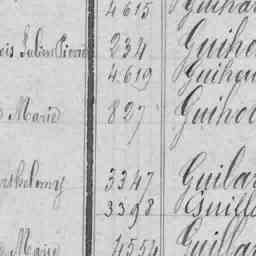 4615 Guiha
ois Julien Pierre 234 Guiho
4619 Guihou
Marie 827 Guiho
arthelemy 3347 Guilar
3398 Guillo
Marie 4554 Guillar